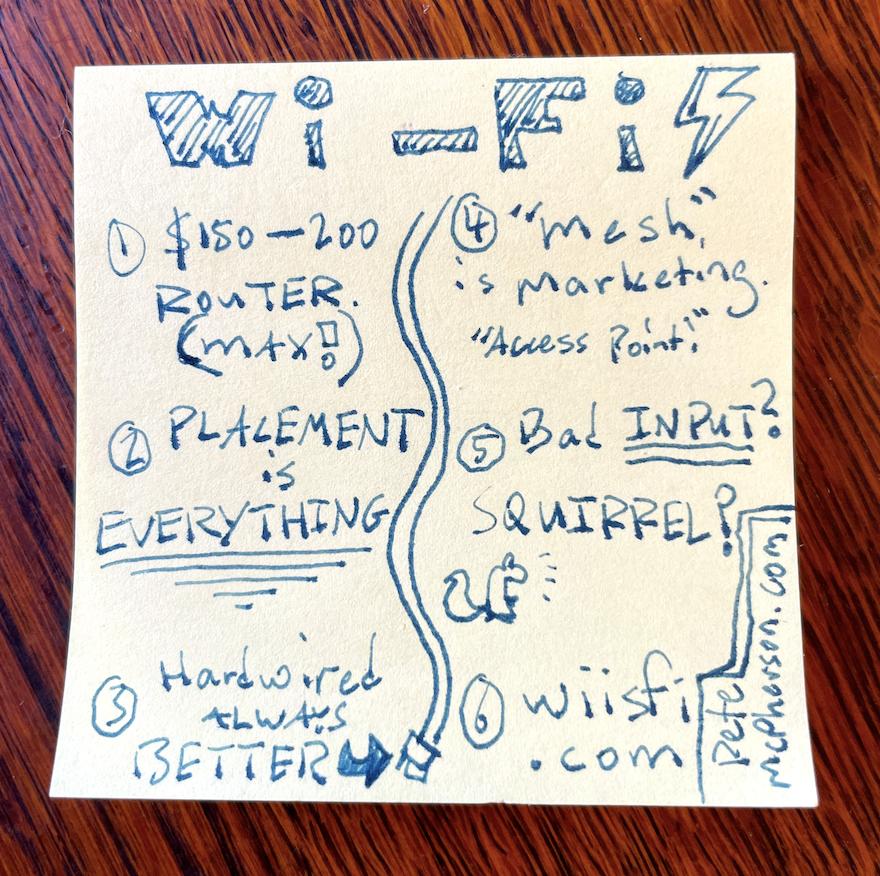 Wi-Fi
1 $150-200
ROUTER.
(MAX!)
2 PLACEMENT
is
EVERYTHING
3 Hardwired
ALWAYS
BETTER
4 "Mesh"
is marketing.
"Access Point!"
5 Bad INPUT?
SQUIRREL?
6 wiisfi
.com
Pete
mcpherson.com